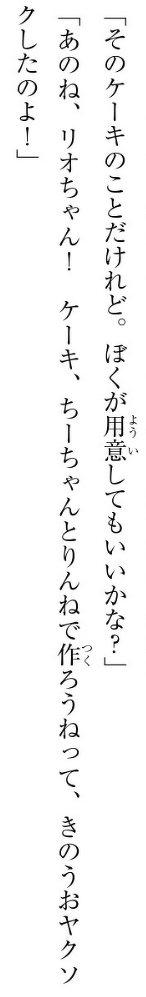 「そのケーキのことだけれど。ぼくが用意してもいいかな？」
「あのね、リオちゃん！　ケーキ、ちーちゃんとりんねで作ろうねって、きのうおヤクソ
クしたのよ！」